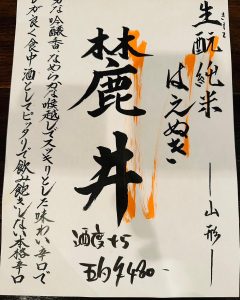 生酛純米
はえぬき
―山形―
麓井
酒度+5
五勺¥480-
な吟醸香、なめらかな喉越しでスッキリとした味わい辛口で
レが良く食中酒としてピッタリで飲み飽きしない本格辛口